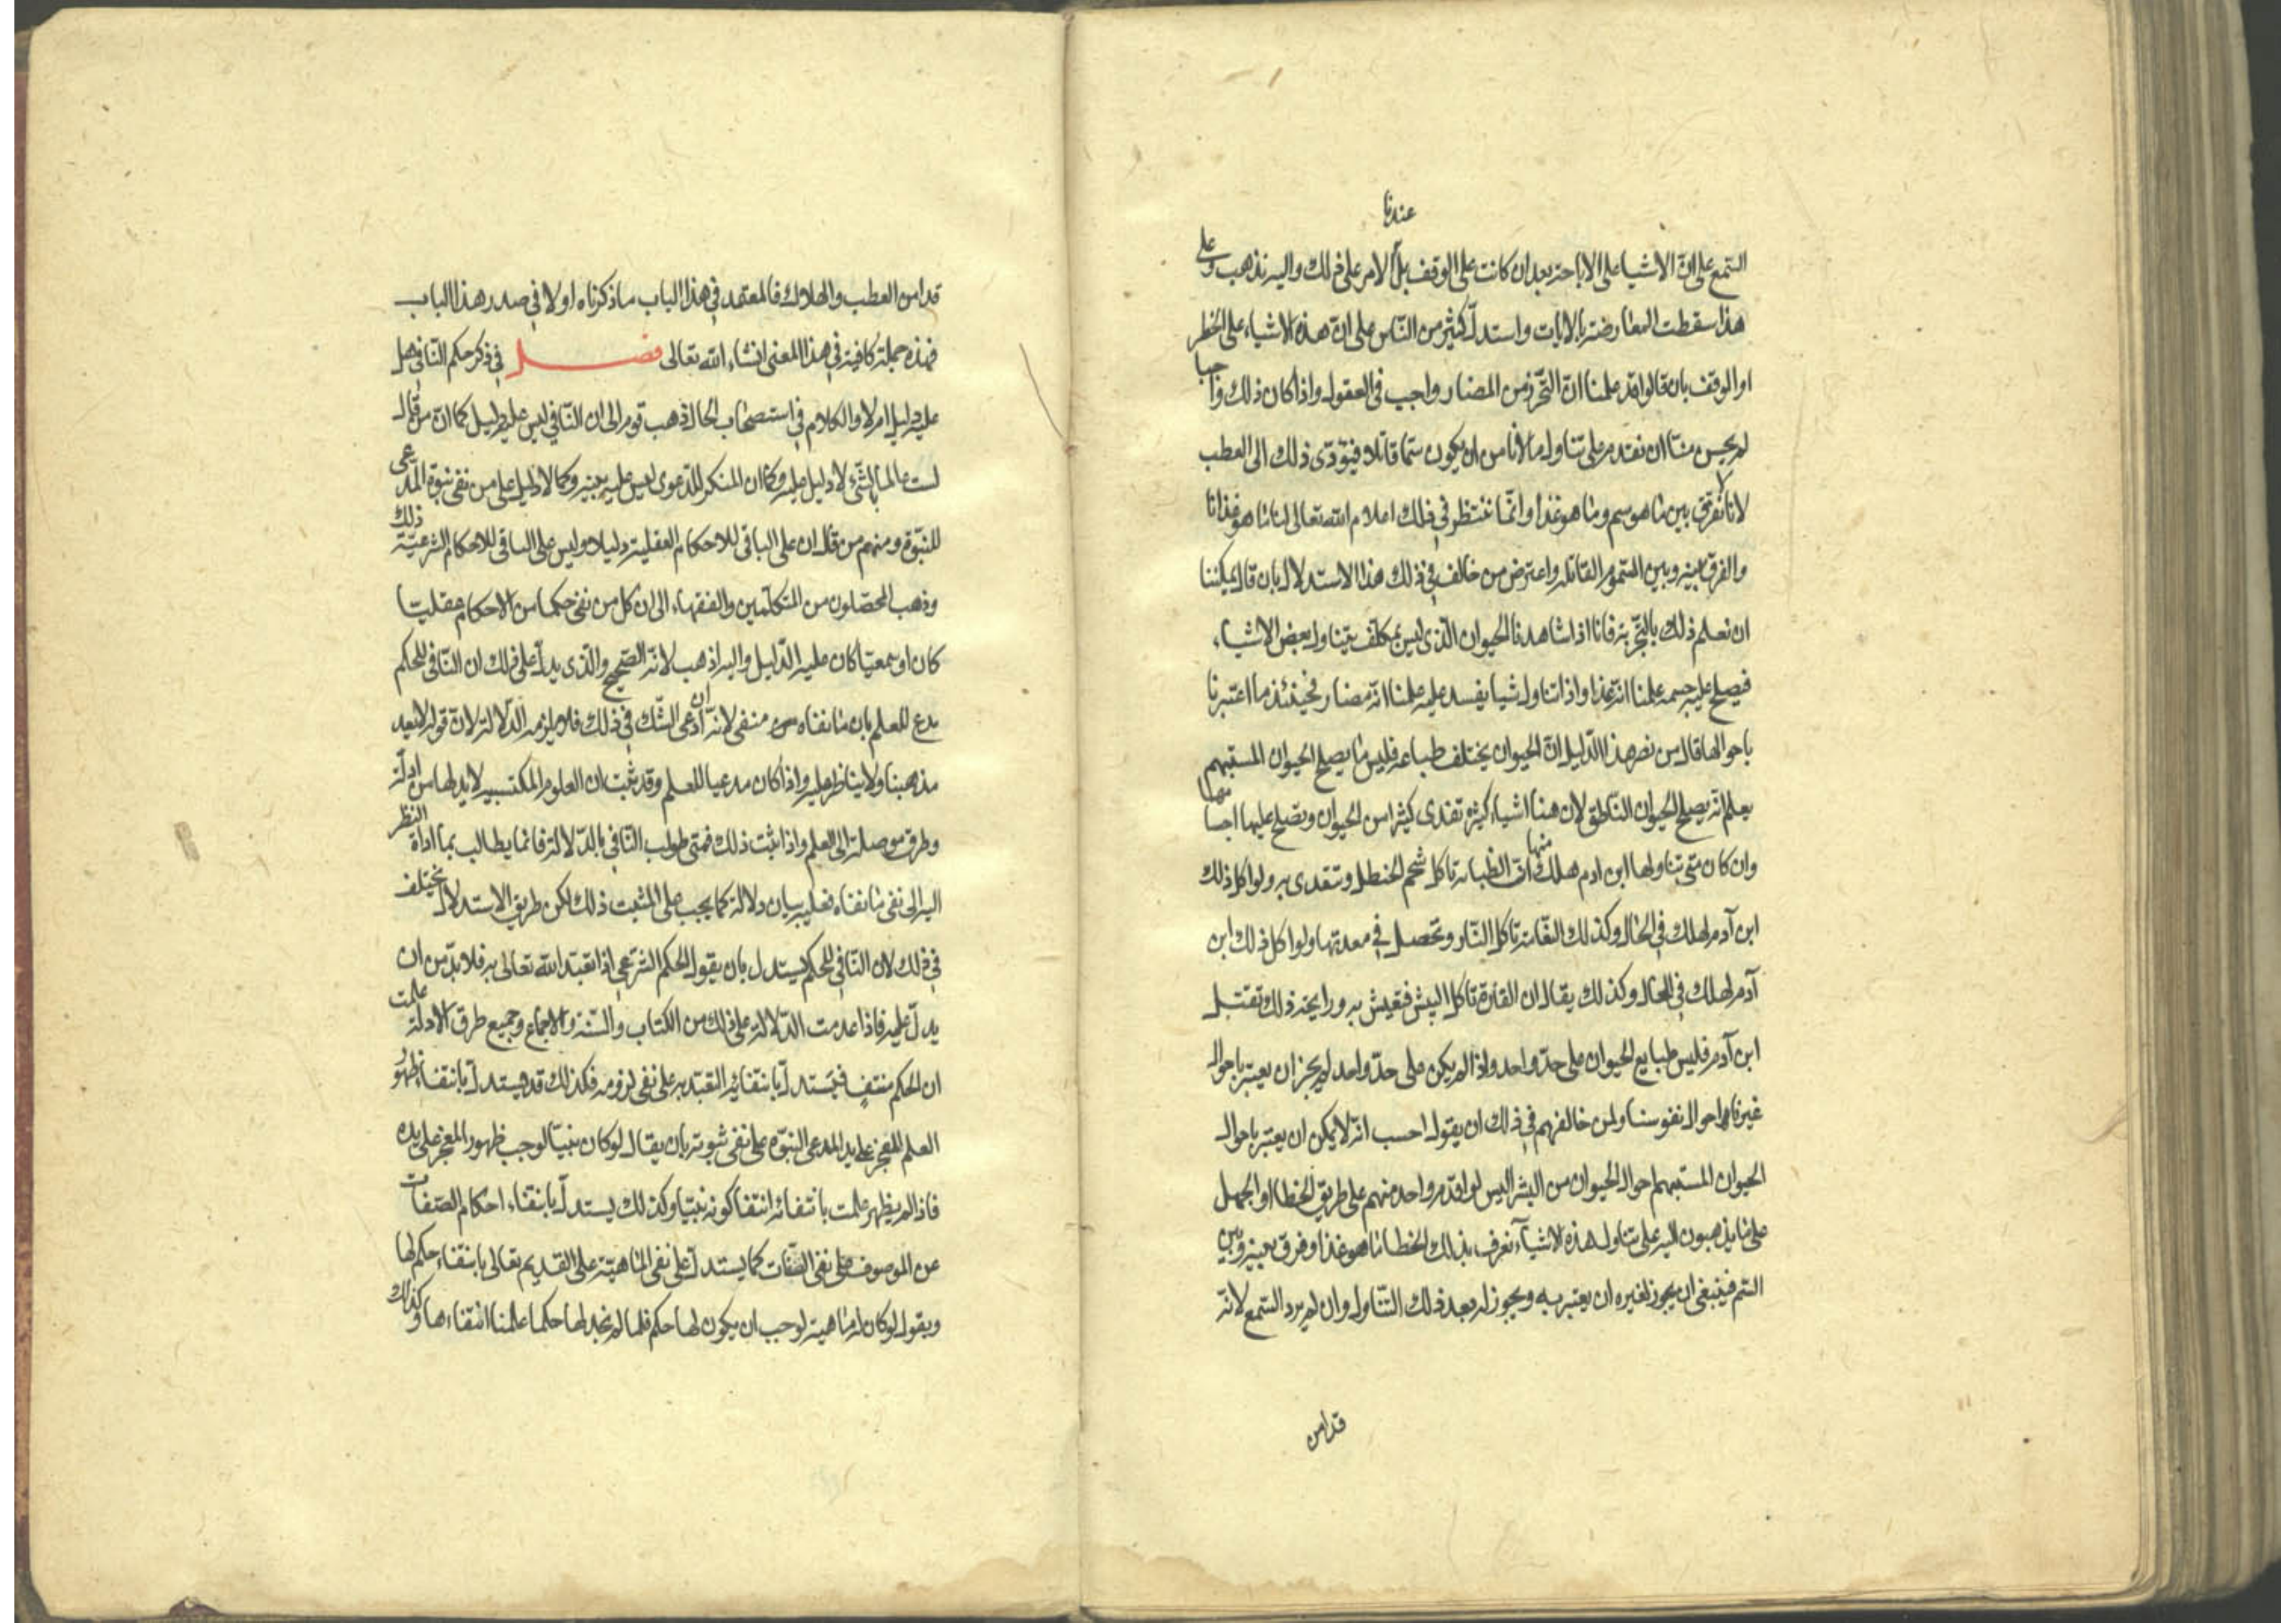 عندنا
السمع على ان الاشيا على الاباحة بعد ان كانت على الوقف بل الامر على ذلك واليه نذهب وعلى
هذا سقطت المعارضة بالايات واستدل كثير من الناس على ان هذه الاشياء على الحظر
او الوقف بان قالوا قد علمنا ان التحرز من المضار واجب في العقول واذا كان ذلك واجبا
لم يحسن منا ان نقدم على تناول ما لا نامن ان يكون سما قاتلا فيؤدى ذلك الى العطب
لانا لا نفرق بين ما هو سم وما هو غذا وانما ننتظر في ذلك اعلام الله تعالى لنا ما هو غذانا
والفرق بينه وبين السموم القاتلة واعترض من خالف في ذلك هذا الاستدلال بان قال يمكننا
ان نعلم ذلك بالتجربة فانا اذا شاهدنا الحيوان الذى ليس بمكلف يتناول بعض الاشياء
فيصلح عليه جسمه علمنا انه غذا واذا تناول شيا يفسد عليه علمنا انه مضار فحينئذ ما اعتبرنا
باحوالها قال من نصر هذا الدليل ان الحيوان يختلف طباعه فليس ما يصلح الحيوان المستبهم
يعلم انه يصلح الحيوان الناطق لان هنا اشياء كثيرة تغدى كثيرا من الحيوان وتصلح عليها اجسامها
وان كان متى تناولها ابن ادم هلك منها ان الظباء تاكل شحم الحنظل وتتغدى به ولو اكل ذلك
ابن آدم لهلك في الحال وكذلك النعامة تاكل النار وتحصل في معدتها ولو اكل ذلك ابن
آدم لهلك في الحال وكذلك يقال ان الفارة تاكل البيش فتعيش به ورايحة ذلك تقتل
ابن آدم فليس طبايع الحيوان على حد واحد واذا لم يكن على حد واحد لم يجز ان يعتبر باحوال
غيرنا احوال نفوسنا ولمن خالفهم في ذلك ان يقول احسب انه لا يمكن ان يعتبر باحوال
الحيوان المستبهم احوال الحيوان من البشر اليس لو اقدم واحد منهم على طريق الخطا او الجهل
على ما يذهبون اليه على تناول هذه الاشيآء نعرف بذلك الخطا ما هو غذا وفرق بينه وبين
السم فينبغى ان يجوز لغيره ان يعتبر به ويجوز له بعد ذلك التناول وان لم يرد السمع لانه
قد امن
قد امن العطب والهلاك فالمعتمد في هذا الباب ما ذكرناه اولا في صدر هذا الباب
فهذه جملة كافية في هذا المعنى انشاء الله تعالى فصل في ذكر حكم النافي هل
عليه دليل ام لا والكلام في استصحاب الحال ذهب قوم الى ان النافي ليس عليه دليل كما ان من قال
لست عالما بالشىء لا دليل عليه وكما ان المنكر للدعوى ليس عليه بينة وكما لا دليل على من نفى نبوة المدعى
للنبوة ومنهم من قال ان على النافي للاحكام العقلية دليلا وليس على النافي للاحكام الشرعية ذلك
وذهب المحصلون من المتكلمين والفقهاء الى ان كل من نفى حكما من الاحكام عقليتا
كان او سمعيا كان عليه الدليل واليه اذهب لانه الصحيح والذى يدل على ذلك ان النافي للحكم
يدع للعلم بان ما نفاه منفى لانه ان ادعى الشك في ذلك فلا يلزمه الدلالة لان قوله لا يعد
مذهبنا ولا يناظر عليه واذا كان مدعيا للعلم وقد ثبت ان العلوم المكتسبة لا بد لها من ادلة
وطرق موصلة الى العلم واذا ثبت ذلك فمتى طولب النافي بالدلالة فانما يطالب بما اداه النظر
اليه الى نفى ما نفاه فعليه بيان دلالة كما يجب على المثبت ذلك لكن طريق الاستدلال يختلف
في ذلك لان النافي للحكم يستدل بان يقول الحكم الشرعي اذا تعبد الله تعالى به فلا بد من ان
يدل عليه فاذا عدمت الدلالة على ذلك من الكتاب والسنة والاجماع وجميع طرق الادلة علمت
ان الحكم منتف فيستدل بانتفائه التعبد به على نفى لزومه فكذلك قد يستدل بانتفاء ظهور
العلم المعجز على يد المدعى النبوة على نفى ثبوته بان يقال لو كان نبيا لوجب ظهور المعجز على يده
فاذا لم يظهر علمت بانتفائه انتفا كونه نبيا وكذلك يستدل بانتفاء احكام الصفات
عن الموصوف على نفى الصفات كما يستدل على نفى الماهية على القديم تعالى بانتفاء حكم لها
ويقول لو كان له ماهية لوجب ان يكون لها حكم فلما لم نجد لها حكما علمنا انتفاءها وكذلك